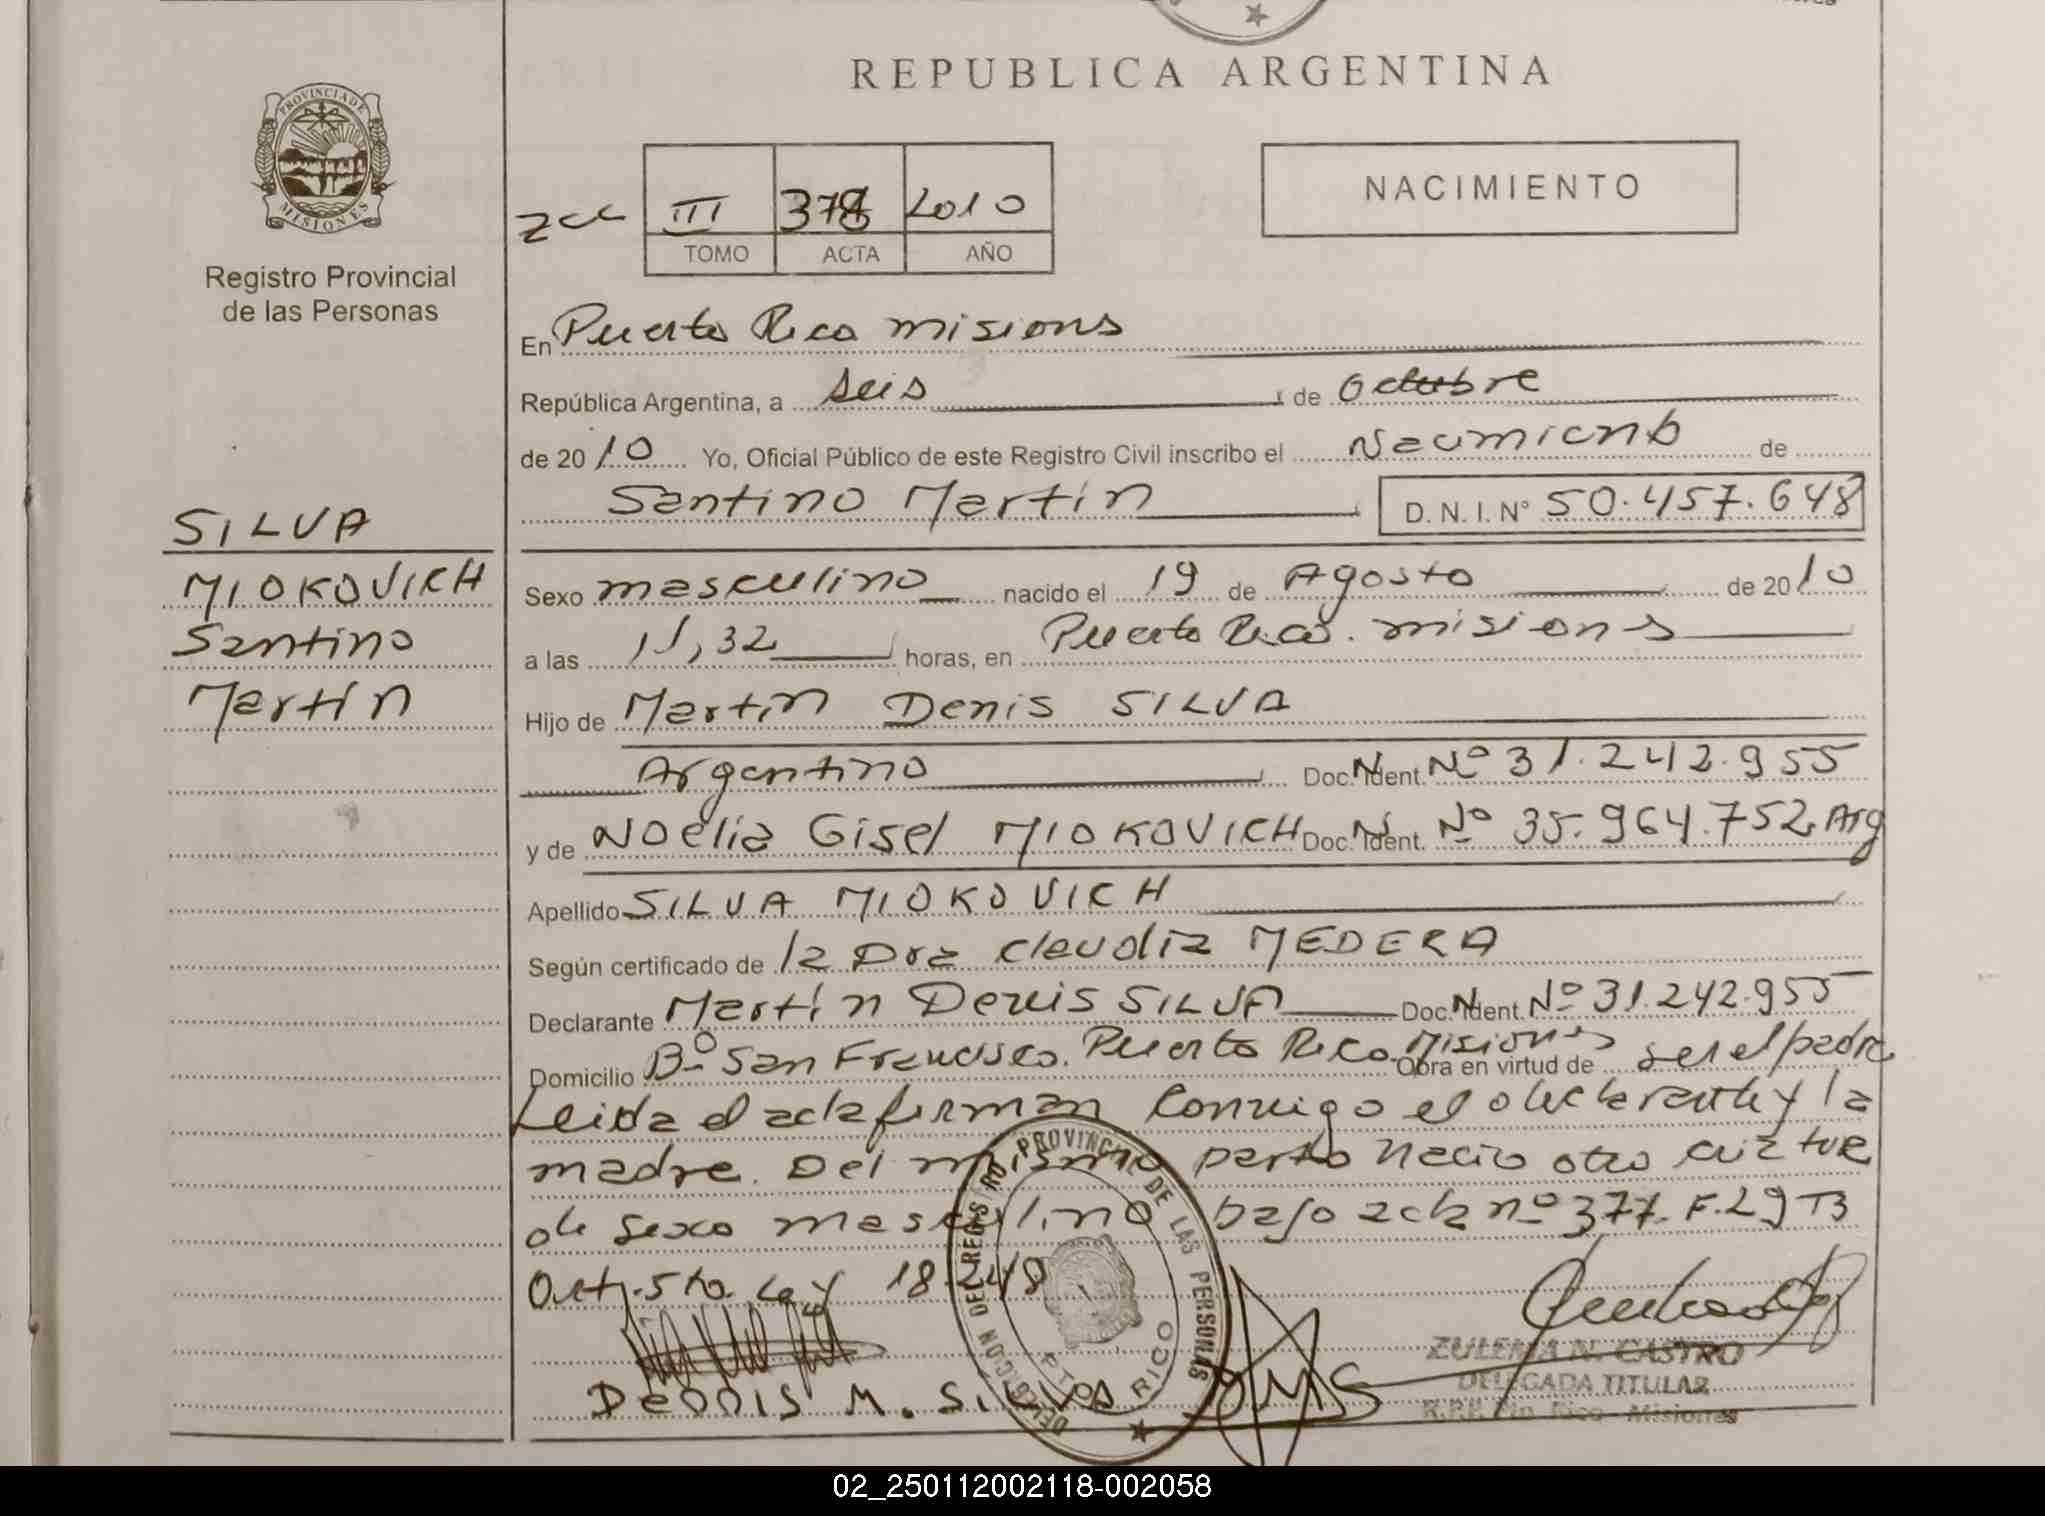 REPUBLICA ARGENTINA
PROVINCIA DE
MISIONES
Registro Provincial
de las Personas
NACIMIENTO
III 378 2010
TOMO ACTA AÑO
En Puerto Rico misiones
República Argentina, a seis de Octubre
de 2010 Yo, Oficial Público de este Registro Civil inscribo el Nacimiento de
Santino Martín D. N. I. Nº 50.457.648
SILVA
MIOKOVICH
Santino
Martín
Sexo masculino nacido el 19 de Agosto de 2010
a las 11,32 horas, en Puerto Rico. misiones
Hijo de Martín Denis SILVA
Argentino Doc. N. Ident. Nº 31.242.955
y de Noelia Gisel MIOKOVICH Doc. N. Ident. Nº 35.964.752 Arg
Apellido SILVA MIOKOVICH
Según certificado de la Dra Claudia MEDERA
Declarante Martín Denis SILVA Doc. N. Ident. Nº 31.242.955
Domicilio Bº San Francisco. Puerto Rico. Misiones Obra en virtud de ser el padre
Leida el acta firman conmigo el declarante y la
madre. Del mismo parto nacio otro criatura
de sexo masculino bajo acta nº 377. F.29 T3
Art. 5to. Ley 18.248
DELEGACION DEL REGISTRO PROVINCIAL DE LAS PERSONAS
PTO. RICO
DENNIS M. SILVA
ZULEMA N. CASTRO
DELEGADA TITULAR
R.P.P. Pto. Rico - Misiones
02_250112002118-002058